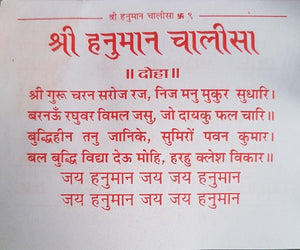 श्री हनुमान चालीसा 卐 ९
श्री हनुमान चालीसा
॥ दोहा ॥
श्री गुरू चरन सरोज रज, निज मनु मुकुर सुधारि।
बरनऊँ रघुवर विमल जसु, जो दायकु फल चारि॥
बुद्धिहीन तनु जानिके, सुमिरों पवन कुमार।
बल बुद्धि विद्या देऊ मोहि, हरहु क्लेश विकार॥
जय हनुमान जय जय हनुमान
जय हनुमान जय जय हनुमान